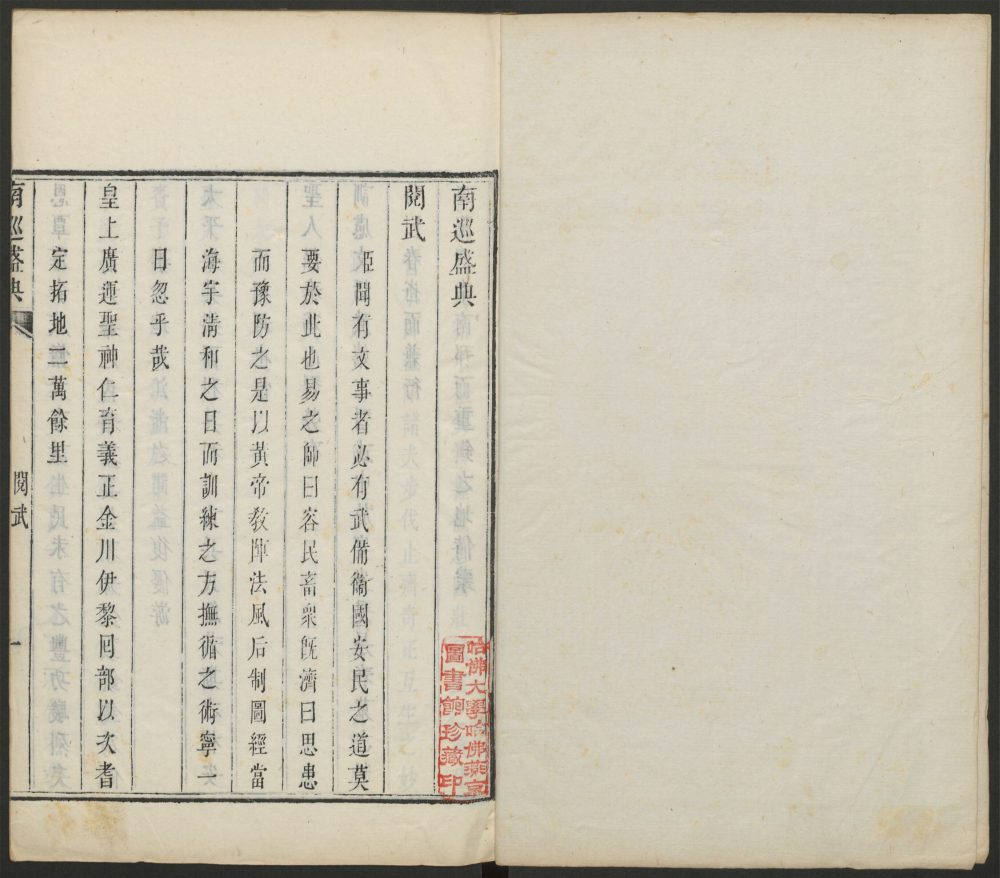 南巡盛典
閱武
姬聞有文事者必有武備衞國安民之道莫
要於此也易之師曰容民畜衆既濟曰思患
而豫防之是以黃帝敎陣法風后制圖經當
海宇淸和之日而訓練之方撫循之術寧一
日忽乎哉
皇上廣運聖神仁育義正金川伊黎囘部以次耆
定拓地二萬餘里
南巡盛典
閱武
一
哈佛大學哈佛燕京
圖書館珍藏印